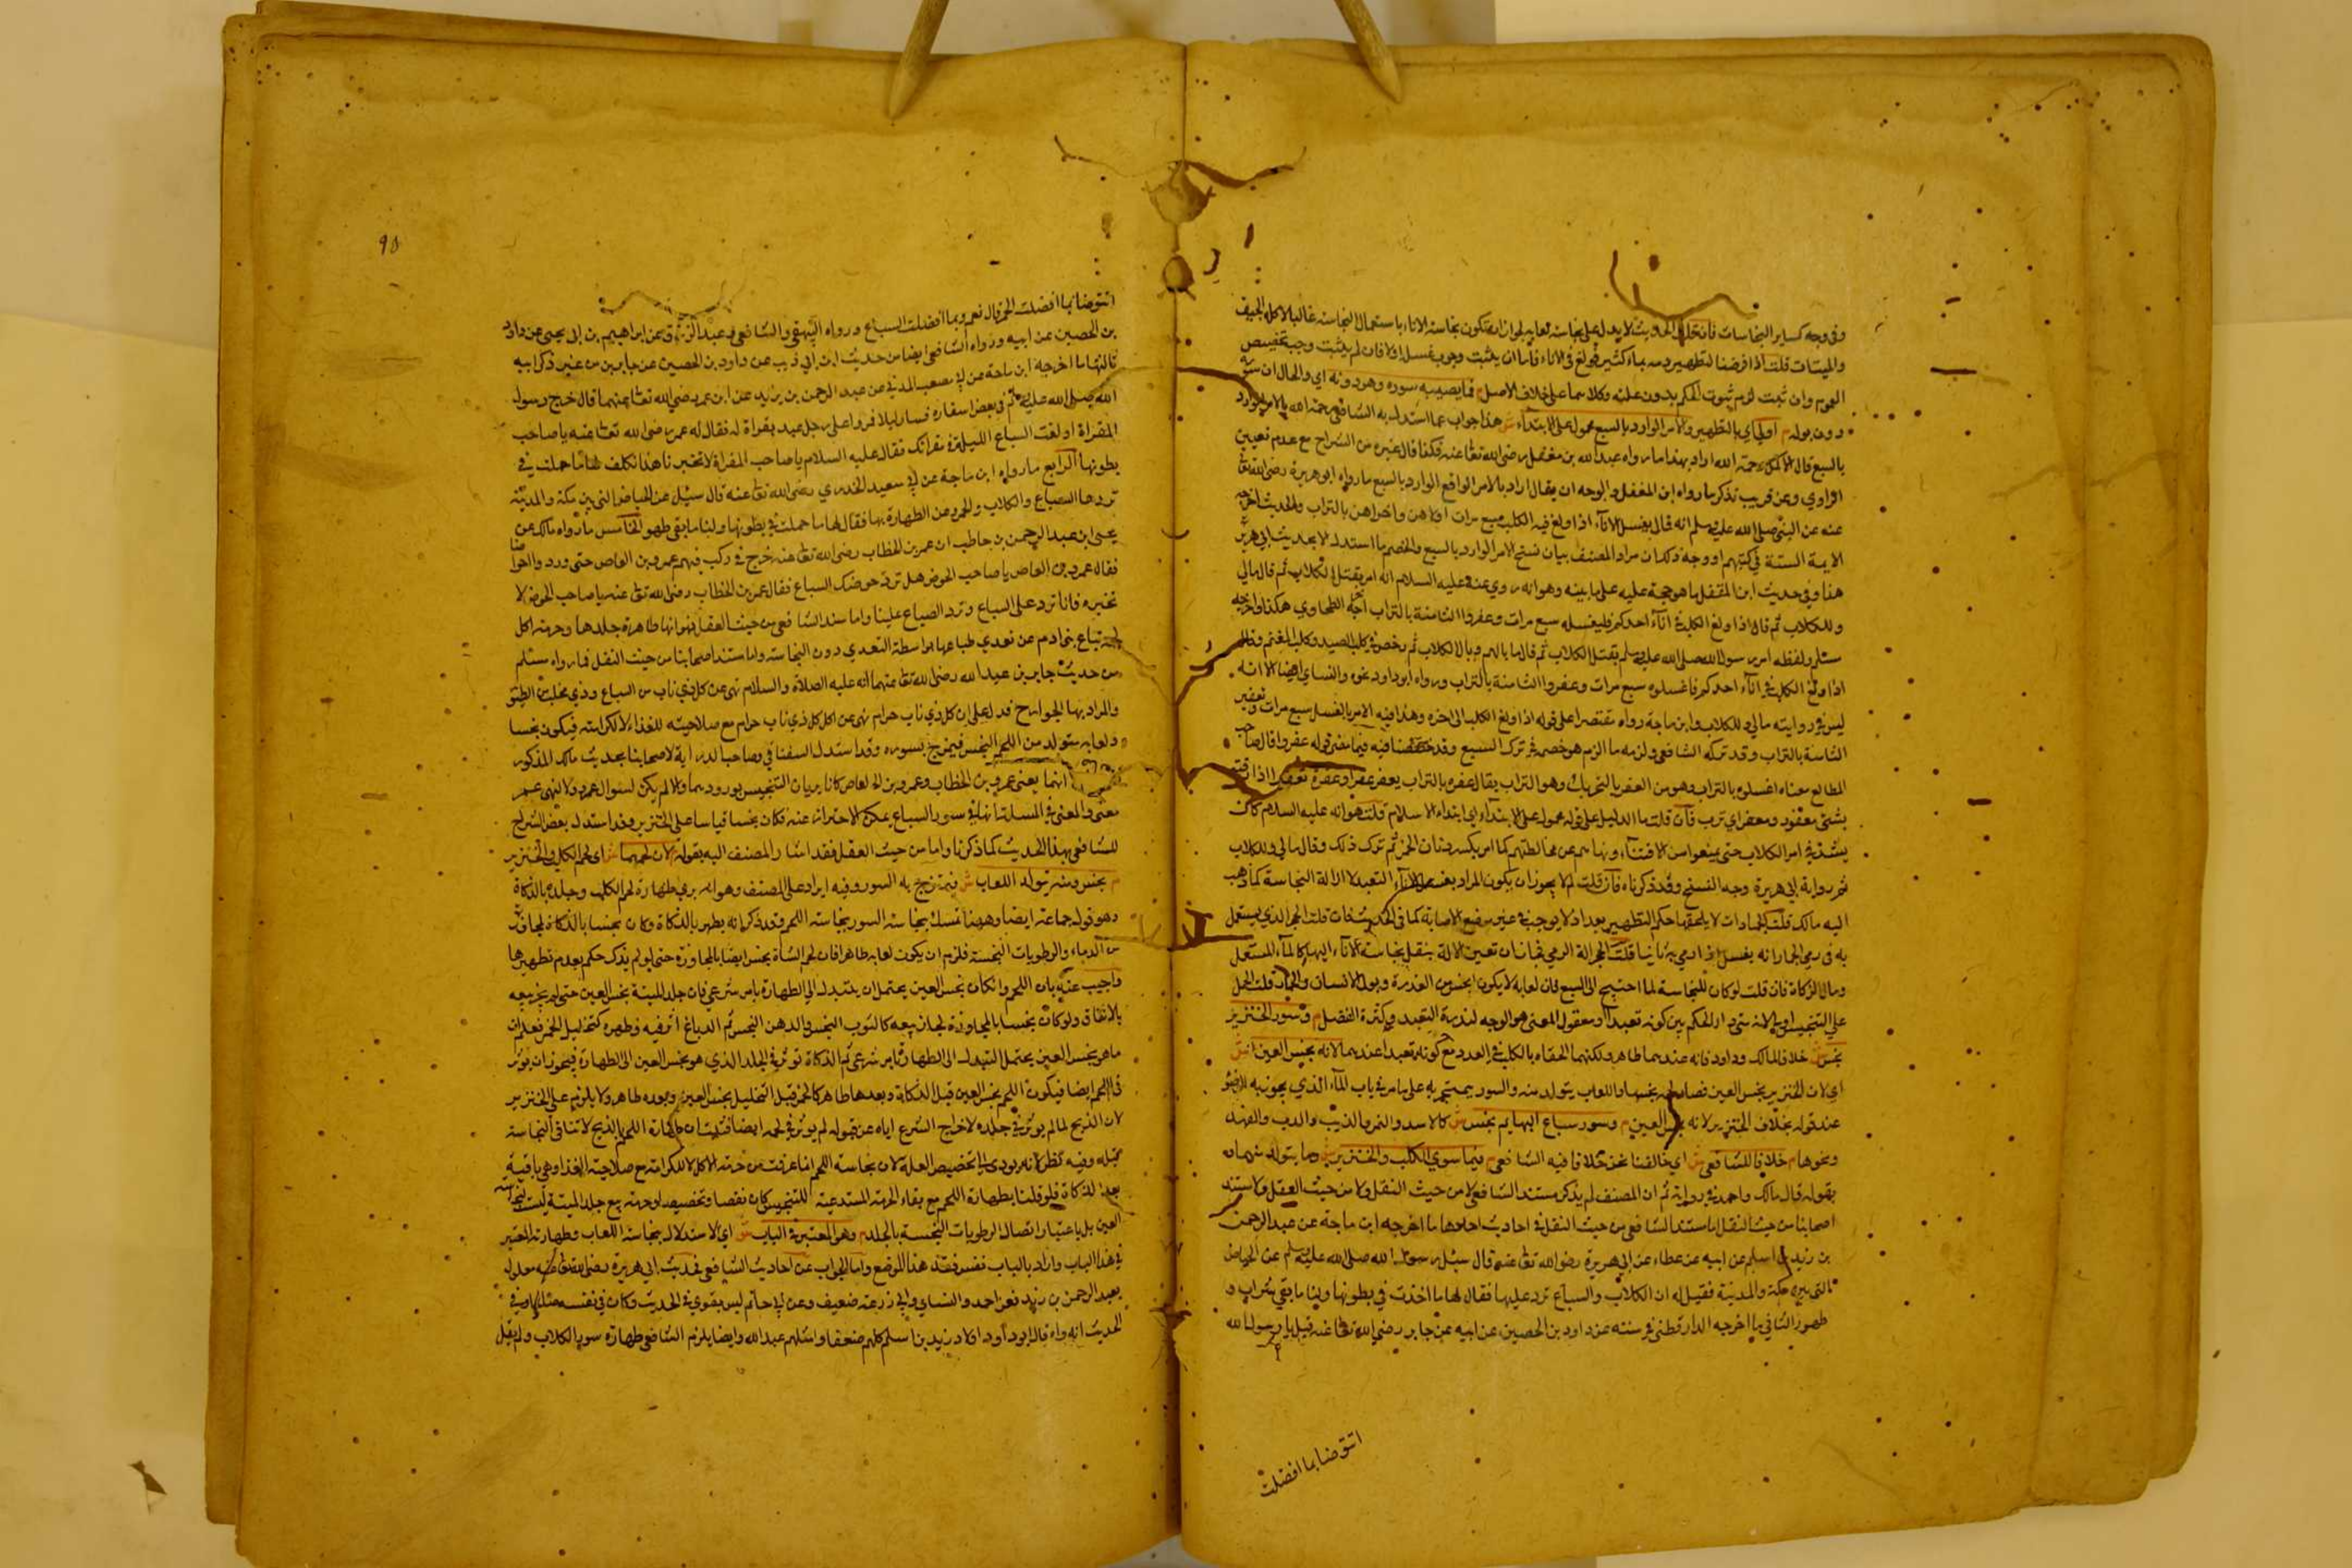 وفي وجه كساير النجاسات فان قلت الحديث لا يدل على نجاسة لعابه لجواز ان تكون نجاسة الاناء باستعمال النجاسة غالبا لاكل الجيف
والميتات قلت اذا فرضنا تطهير دمه بماء كثير فولغ في الاناء فاما ان يثبت وجوب غسل اولا فان لم يثبت وجب تخصيص
العموم وان ثبت لزم ثبوت الحكم بدون علته وكلاهما على خلاف الاصل م فما يصيبه سوره وهو دونه اي والحال ان سوره
دون بوله م اولى اي بالتطهير والامر الوارد بالسبع محمول على الابتداء ش هذا جواب عما استدل به الشافعي رحمه الله بالامر الوارد
بالسبع قال الاكمل رحمه الله اراد بهذا ما رواه عبد الله بن مغفل رضي الله تعالى عنه فكذا قال غيره من الشراح مع عدم تعيين
الراوي وعن قريب نذكر ما رواه ابن المغفل والوجه ان يقال اراد بالامر الواقع الوارد بالسبع ما رواه ابو هريرة رضي الله تعالى
عنه عن النبي صلى الله عليه وسلم انه قال يغسل الاناء اذا ولغ فيه الكلب سبع مرات اولاهن واخراهن بالتراب والحديث اخرجه
الايمة الستة في كتبهم ووجه ذلك ان مراد المصنف بيان نسخ الامر الوارد بالسبع والخصم ما استدل الا بحديث ابي هريرة
هذا وفي حديث ابن المغفل ما هو حجة عليه على ما بينه وهو انه روي عنه عليه السلام انه امر بقتل الكلاب ثم قال مالي
وللكلاب ثم قال اذا ولغ الكلب في اناء احدكم فليغسله سبع مرات وعفروا الثامنة بالتراب اخرجه الطحاوي هكذا واخرجه
مسلم ولفظه امر رسول الله صلى الله عليه وسلم بقتل الكلاب ثم قال ما بالهم وبال الكلاب ثم رخص في كلب الصيد وكلب الغنم وقال
اذا ولغ الكلب في اناء احدكم فاغسلوه سبع مرات وعفروا الثامنة بالتراب ورواه ابو داود نحوه والنساي ايضا الا انه
ليس في روايته مالي وللكلاب وابن ماجة رواه مقتصرا على قوله اذا ولغ الكلب الى اخره وهذا فيه الامر بالغسل سبع مرات وتعفير
الثامنة بالتراب وقد تركه الشافعي ولزمه ما الزم هو خصمه في ترك السبع وقد فيه فيما مضى قوله عفروا قال صاحب
المطالع معناه اغسلوه بالتراب وهو من العفر بالتحريك وهو التراب يقال عفره بالتراب يعفره عفرا وعفره تعفيرا اذا
بشي معقود ومعفر اي ترب فان قلت ما الدليل على قوله محمول على الابتداء اي ابتداء الاسلام قلت هو انه عليه السلام كان
يشدد في امر الكلاب حتى يمنعوا من الاقتناء ونهاهم عن مخالطتهم كما امر بكسر دنان الخمر ثم ترك ذلك وقال مالي وللكلاب
ثم رواية ابي هريرة وجه النسخ وقد ذكرناه فان قلت لم لا يجوز ان يكون المراد بغسل الاناء التعبد لا ازالة النجاسة كما ذهب
اليه مالك قلت الجمادات لا يلحقها حكم التطهير بعد اذ لا يوجب في غير موضع الاصابة كما في الحدث فان قلت الحجر الذي يستعمل
به في رمي الجمار انه يغسل اذا رمي به ثانيا قلت الحجر الة الرمي فجاز ان تعين الالة بنقل نجاسة الاناء اليها كالماء المستعمل
ومال الزكاة فان قلت لو كان للنجاسة لما احتيج الى السبع فان لعابه لا يكون انجس من العذرة وبول الانسان والحمار قلت الحمل
على التنجيس اولى لانه متى دار الحكم بين كونه تعبدا ومعقول المعنى هو الوجه لندرة التعبد وكثرة التعقل م وسور الخنزير
نجس ش خلافا لمالك وداود فانه عندهما طاهر ولكنهما الحقاه بالكلب في العدد مع كونه تعبدا عندهما لانه نجس العين ش
اي لان الخنزير نجس العين فصار لحمه نجسا واللعاب يتولد منه والسور يمتزج به على ما مر في باب الماء الذي يجوز به الوضوء
عند قوله بخلاف الخنزير لانه نجس العين م وسور سباع البهايم نجس ش كالاسد والنمر والذيب والدب والفهد
ونحوها م خلافا للشافعي ش اي خالفنا نحن خلافا فيه الشافعي م فيما سوى الكلب والخنزير ش وما يتولد منهما
بقوله قال مالك واحمد في رواية ثم ان المصنف لم يذكر مستند الشافعي لا من حيث النقل ولا من حيث العقل ولا مستند
اصحابنا من حيث النقل اما مستند الشافعي من حيث النقل في احاديث احدها ما اخرجه ابن ماجة عن عبد الرحمن
بن زيد بن اسلم عن ابيه عن عطاء عن ابي هريرة رضي الله تعالى عنه قال سئل رسول الله صلى الله عليه وسلم عن الحياض
التي بين مكة والمدينة فقيل له ان الكلاب والسباع ترد عليها فقال لها ما اخذت في بطونها ولنا ما بقي شراب و
طهور الثاني ما اخرجه الدارقطني في سننه عن داود بن الحصين عن ابيه عن جابر رضي الله تعالى عنه قيل يا رسول الله
اتتوضا بما افضلت
98
اتتوضا بما افضلت الحمر قال نعم وبما افضلت السباع ورواه البيهقي والشافعي وعبد الرزاق عن ابراهيم بن ابي يحيى عن داود
بن الحصين عن ابيه ورواه الشافعي ايضا من حديث ابن ابي ذيب عن داود بن الحصين عن جابر بن من غير ذكر ابيه
ثالثها ما اخرجه ابن ماجة عن ابي مصعب المدني عن عبد الرحمن بن يزيد عن ابن عمر رضي الله تعالى عنهما قال خرج رسول
الله صلى الله عليه وسلم في بعض اسفاره فسار ليلا فمروا على رجل عند مقراة له فقال له عمر رضي الله تعالى عنه يا صاحب
المقراة اولغت السباع الليلة في مقراتك فقال عليه السلام يا صاحب المقراة لا تخبرنا هذا تكلف لها ما حملت في
بطونها الرابع ما رواه ابن ماجة عن ابي سعيد الخدري رضي الله تعالى عنه قال سئل عن الحياض التي بين مكة والمدينة
تردها السباع والكلاب والحمر وعن الطهارة بها فقال لها ما حملت في بطونها ولنا ما بقي طهور الخامس ما رواه مالك عن
يحيى ابن عبد الرحمن بن حاطب ان عمر بن الخطاب رضي الله تعالى عنه خرج في ركب فيهم عمرو بن العاص حتى وردوا حوضا
فقال عمرو بن العاص يا صاحب الحوض هل ترد حوضك السباع فقال عمر بن الخطاب رضي الله تعالى عنه يا صاحب الحوض لا
تخبره فانا نرد على السباع وترد السباع علينا واما سند الشافعي من حيث العقل فهو انها طاهرة جلدها وحرمة اكل
لحمه تباع بني ادم عن تعدي طباعها بواسطة التعدي دون النجاسة واما مستند اصحابنا من حيث النقل فما رواه مسلم
من حديث جابر بن عبد الله رضي الله تعالى عنهما انه عليه الصلاة والسلام نهى عن كل ذي ناب من السباع وذي مخلب من الطيور
والمراد بها الجوارح فدل على ان كل ذي ناب حرام نهى عن اكل كل ذي ناب حرام مع صلاحيته للغذاء لا لكرامته فيكون نجسا
ولعابه يتولد من اللحم النجس فيمتزج بسوره وقد استدل السغناقي وصاحب الدراية لاصحابنا بحديث مالك المذكور
انهما يعني عمر بن الخطاب وعمرو بن العاص كانا يريان التنجيس بورودهما والا لم يكن لسوال عمرو ولا لنهي عمر
معنى والمعنى في المسلتان سور السباع يمكن الاحتراز عنه فكان نجسا قياسا على الخنزير وقد استدل بعض الشراح
للشافعي بهذا الحديث كما ذكرنا واما من حيث العقل فقد اشار المصنف اليه بقوله م لان لحمهما ش اي لحم الكلب والخنزير
م نجس ومنه يتولد اللعاب ش فيمتزج به السور وفيه ايراد على المصنف وهو انه يرى طهارة لحم الكلب وجلده بالذكاة
وهو قول جماعة ايضا وههنا تمسك بنجاسة السور بنجاسة اللحم وقد ذكر انه يطهر بالذكاة وكان نجسا بالذكاة لمجاورة
من الدماء والرطوبات النجسة فلزم ان يكون لعابه طاهرا فان لحم الشاة نجس ايضا بالمجاورة حتى لو لم يذك حكم بعدم تطهيرها
واجيب عنه بان اللحم وان كان نجس العين يحتمل ان يتبدل الى الطهارة بامر شرعي فان جلد الميتة نجس العين حتى لم يجز بيعه
بالاتفاق ولو كان نجسا بالمجاورة لجاز بيعه كالثوب النجس والدهن النجس ثم الدباغ اثر فيه وطهره كتخليل الخمر فعلم ان
ما هو نجس العين يحتمل التبدل الى الطهارة بامر شرعي ثم الذكاة توثر في الجلد الذي هو نجس العين الى الطهارة فيجوز ان يوثر
في اللحم ايضا فيكون اللحم نجس العين قبل الذكاة وبعدها طاهرا كالخمر قبل التخليل نجس العين وبعده طاهر ولا يلزم على الخنزير
لان الذبح لما لم يوثر في جلده لاخراج الشرع اياه عن قبوله لم يوثر في لحمه ايضا فثبت ان طهارة اللحم بالذبح لا تنافي النجاسة
قبله وفيه نظر لانه يودي الى تخصيص العلة لان نجاسة اللحم انما عرفت من حرمة الاكل لا للكرامة مع صلاحية الغذا وهي باقية
بعد الذكاة فلو قلنا بطهارة اللحم مع بقاء الحرمة المستدعية للتنجيس كان نقضا وتخصيصا وحرمة بيع جلد الميتة ليست لنجاسة
العين بل باعتبار اتصال الرطوبات النجسة بالجلد م وهو المعتبر في الباب ش اي الاستدلال بنجاسة اللعاب وطهارته المعتبر
في هذا الباب واراد بالباب نفس فقه هذا الموضع واما الجواب عن احاديث الشافعي فحديث ابي هريرة رضي الله تعالى عنه معلول
بعبد الرحمن بن زيد فعن احمد والنساي وابي زرعة ضعيف وعن ابي حاتم ليس بقوي في الحديث وكان في نفسه صالحا وفي
الحديث انه واه قال ابو داود اولاد زيد بن اسلم كلهم ضعفا وامثلهم عبد الله وايضا يلزم الشافعي طهارة سور الكلاب ولم يقل